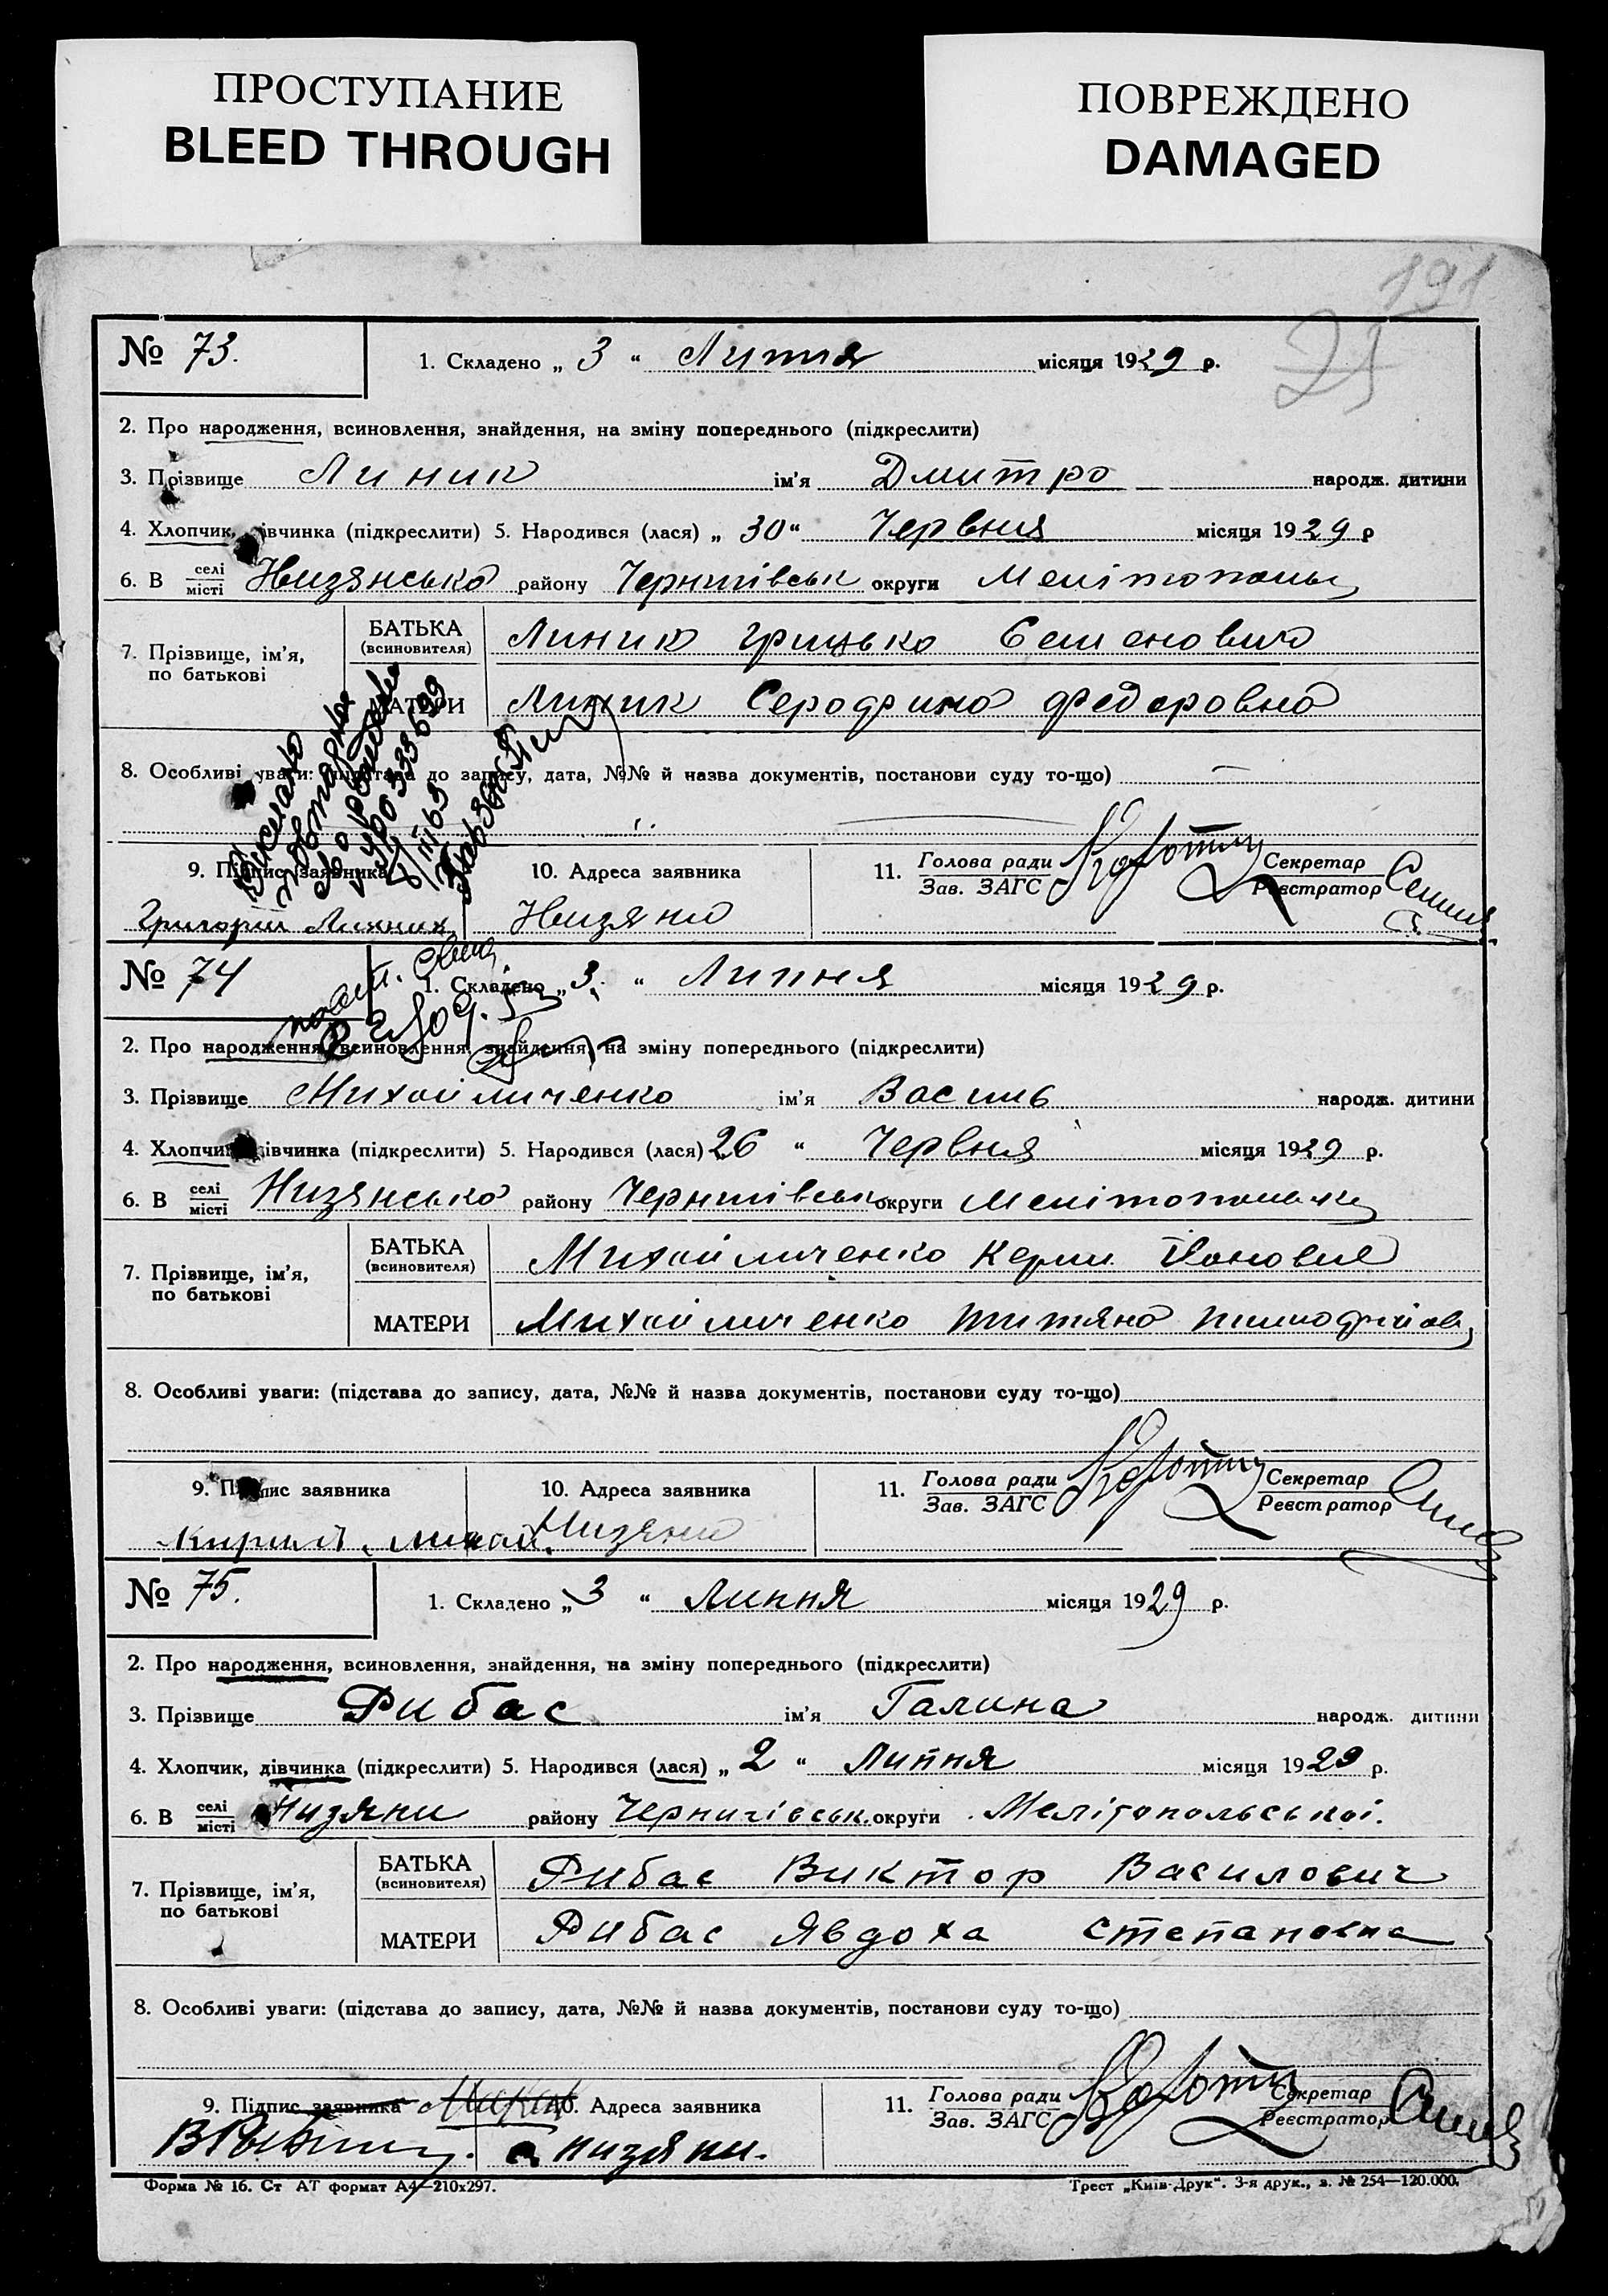 ПРОСТУПАНИЕ
BLEED THROUGH
ПОВРЕЖДЕНО
DAMAGED
191
25
№ 73.
1. Складено „ 3 “ Липня місяця 1929 р.
2. Про народження, всиновлення, знайдення, на зміну попереднього (підкреслити)
3. Прізвище Линик ім'я Дмитро народж. дитини
4. Хлопчик, дівчинка (підкреслити) 5. Народився (лася) „ 30 “ Червня місяця 1929 р
6. В селі місті Низянська району Чернигівськ округи
7. Прізвище, ім'я, по батькові
БАТЬКА (всиновителя) Линик Грицько Семенович
МАТЕРИ Линик Федоровна
8. Особливі уваги: (підстава до запису, дата, №№ й назва документів, постанови суду то-що)
9. Підпис заявника
10. Адреса заявника
11. Голова ради Зав. ЗАГС
Секретар Реєстратор
Григорій Линник
Низяни
№ 74
1. Складено „ 3. “ Липня місяця 1929 р.
2. Про народження, всиновлення, знайдення, на зміну попереднього (підкреслити)
3. Прізвище Михайличенко ім'я Василь народж. дитини
4. Хлопчик, дівчинка (підкреслити) 5. Народився (лася) 26 “ Червня місяця 1929 р.
6. В селі місті Низянська району Чернигівськ округи
7. Прізвище, ім'я, по батькові
БАТЬКА (всиновителя) Михайличенко
МАТЕРИ Михайличенко Титяна
8. Особливі уваги: (підстава до запису, дата, №№ й назва документів, постанови суду то-що)
9. Підпис заявника
10. Адреса заявника
11. Голова ради Зав. ЗАГС
Секретар Реєстратор
Низяни
№ 75.
1. Складено „ 3 “ Липня місяця 1929 р.
2. Про народження, всиновлення, знайдення, на зміну попереднього (підкреслити)
3. Прізвище Рибас ім'я Галина народж. дитини
4. Хлопчик, дівчинка (підкреслити) 5. Народився (лася) „ 2 “ Липня місяця 1929 р.
6. В селі місті Низяни району Чернигівськ. округи Мелітопольської.
7. Прізвище, ім'я, по батькові
БАТЬКА (всиновителя) Рибас Виктор Василович
МАТЕРИ Рибас Явдоха Степановна
8. Особливі уваги: (підстава до запису, дата, №№ й назва документів, постанови суду то-що)
9. Підпис заявника
10. Адреса заявника
11. Голова ради Зав. ЗАГС
Секретар Реєстратор
с низяни.
Форма № 16. Ст АТ формат А4—210х297.
Трест „Київ-Друк“. 3-я друк., з. № 254—120.000.